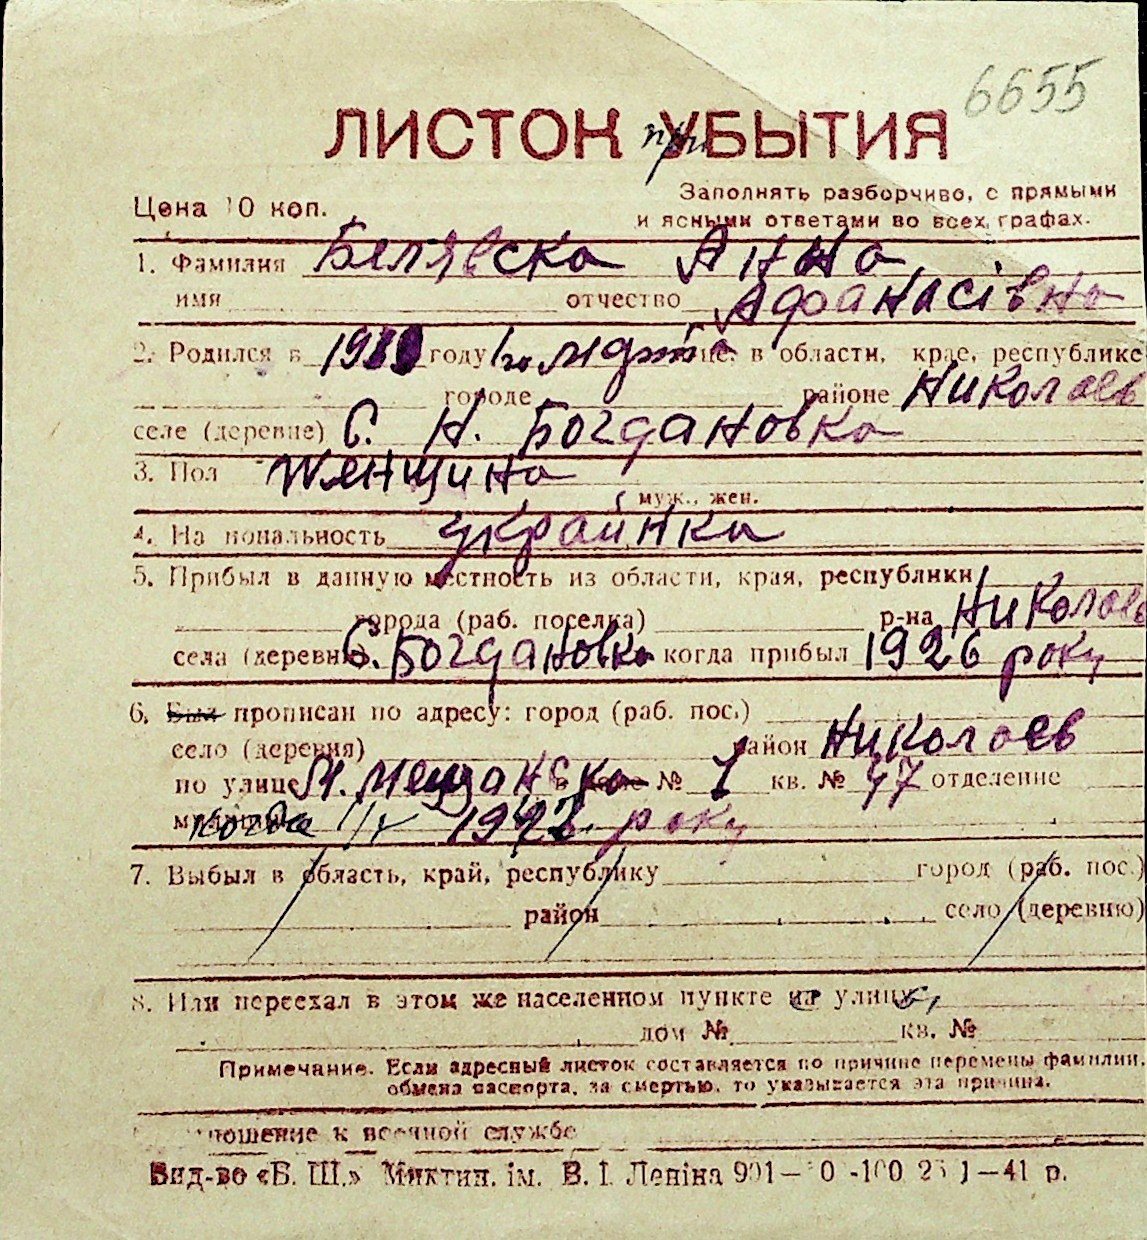 6655
ЛИСТОК при УБЫТИЯ
Цена 10 коп.
Заполнять разборчиво, с прямыми
и ясными ответами во всех графах.
1. Фамилия Белявска Анна
имя отчество Афанасівна
2. Родился в году 1го в области, крае, республике
городе районе Николаев
селе (деревне) С. Н. Богдановка
3. Пол Женщина
муж., жен.
4. Национальность українка
5. Прибыл в данную местность из области, края, республики
города (раб. поселка) р-на Николаев
села (деревни) С. Богдановка когда прибыл 1926 року
6. Был прописан по адресу: город (раб. пос.)
село (деревня) район Николаев
по улице М. Мещанска № 1 кв. № 47 отделение
когда 1/V року
7. Выбыл в область, край, республику город (раб. пос.)
район село (деревню)
8. Или переехал в этом же населенном пункте с улицы,
дом № кв. №
Примечание. Если адресный листок составляется по причине перемены фамилии,
обмена паспорта, за смертью, то указывается эта причина.
ношение к военной службе
Вид-во «Б. Ш.» Миктип. ім. В. І. Леніна 901— 0 -100 25 1—41 р.